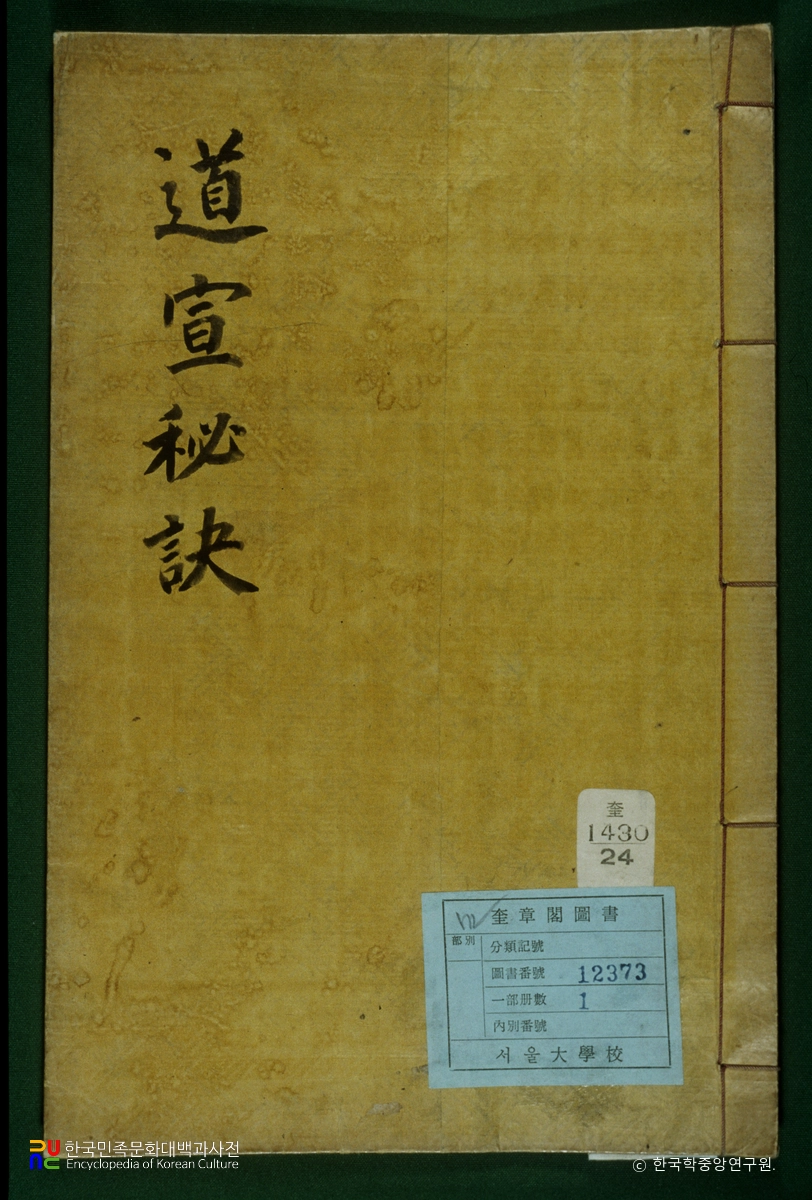 道宣秘訣
奎
1430
24
奎章閣圖書
部別
分類記號
圖書番號 12373
一部册數 1
內別番號
서울大學校
한국민족문화대백과사전
Encyclopedia of Korean Culture
© 한국학중앙연구원.